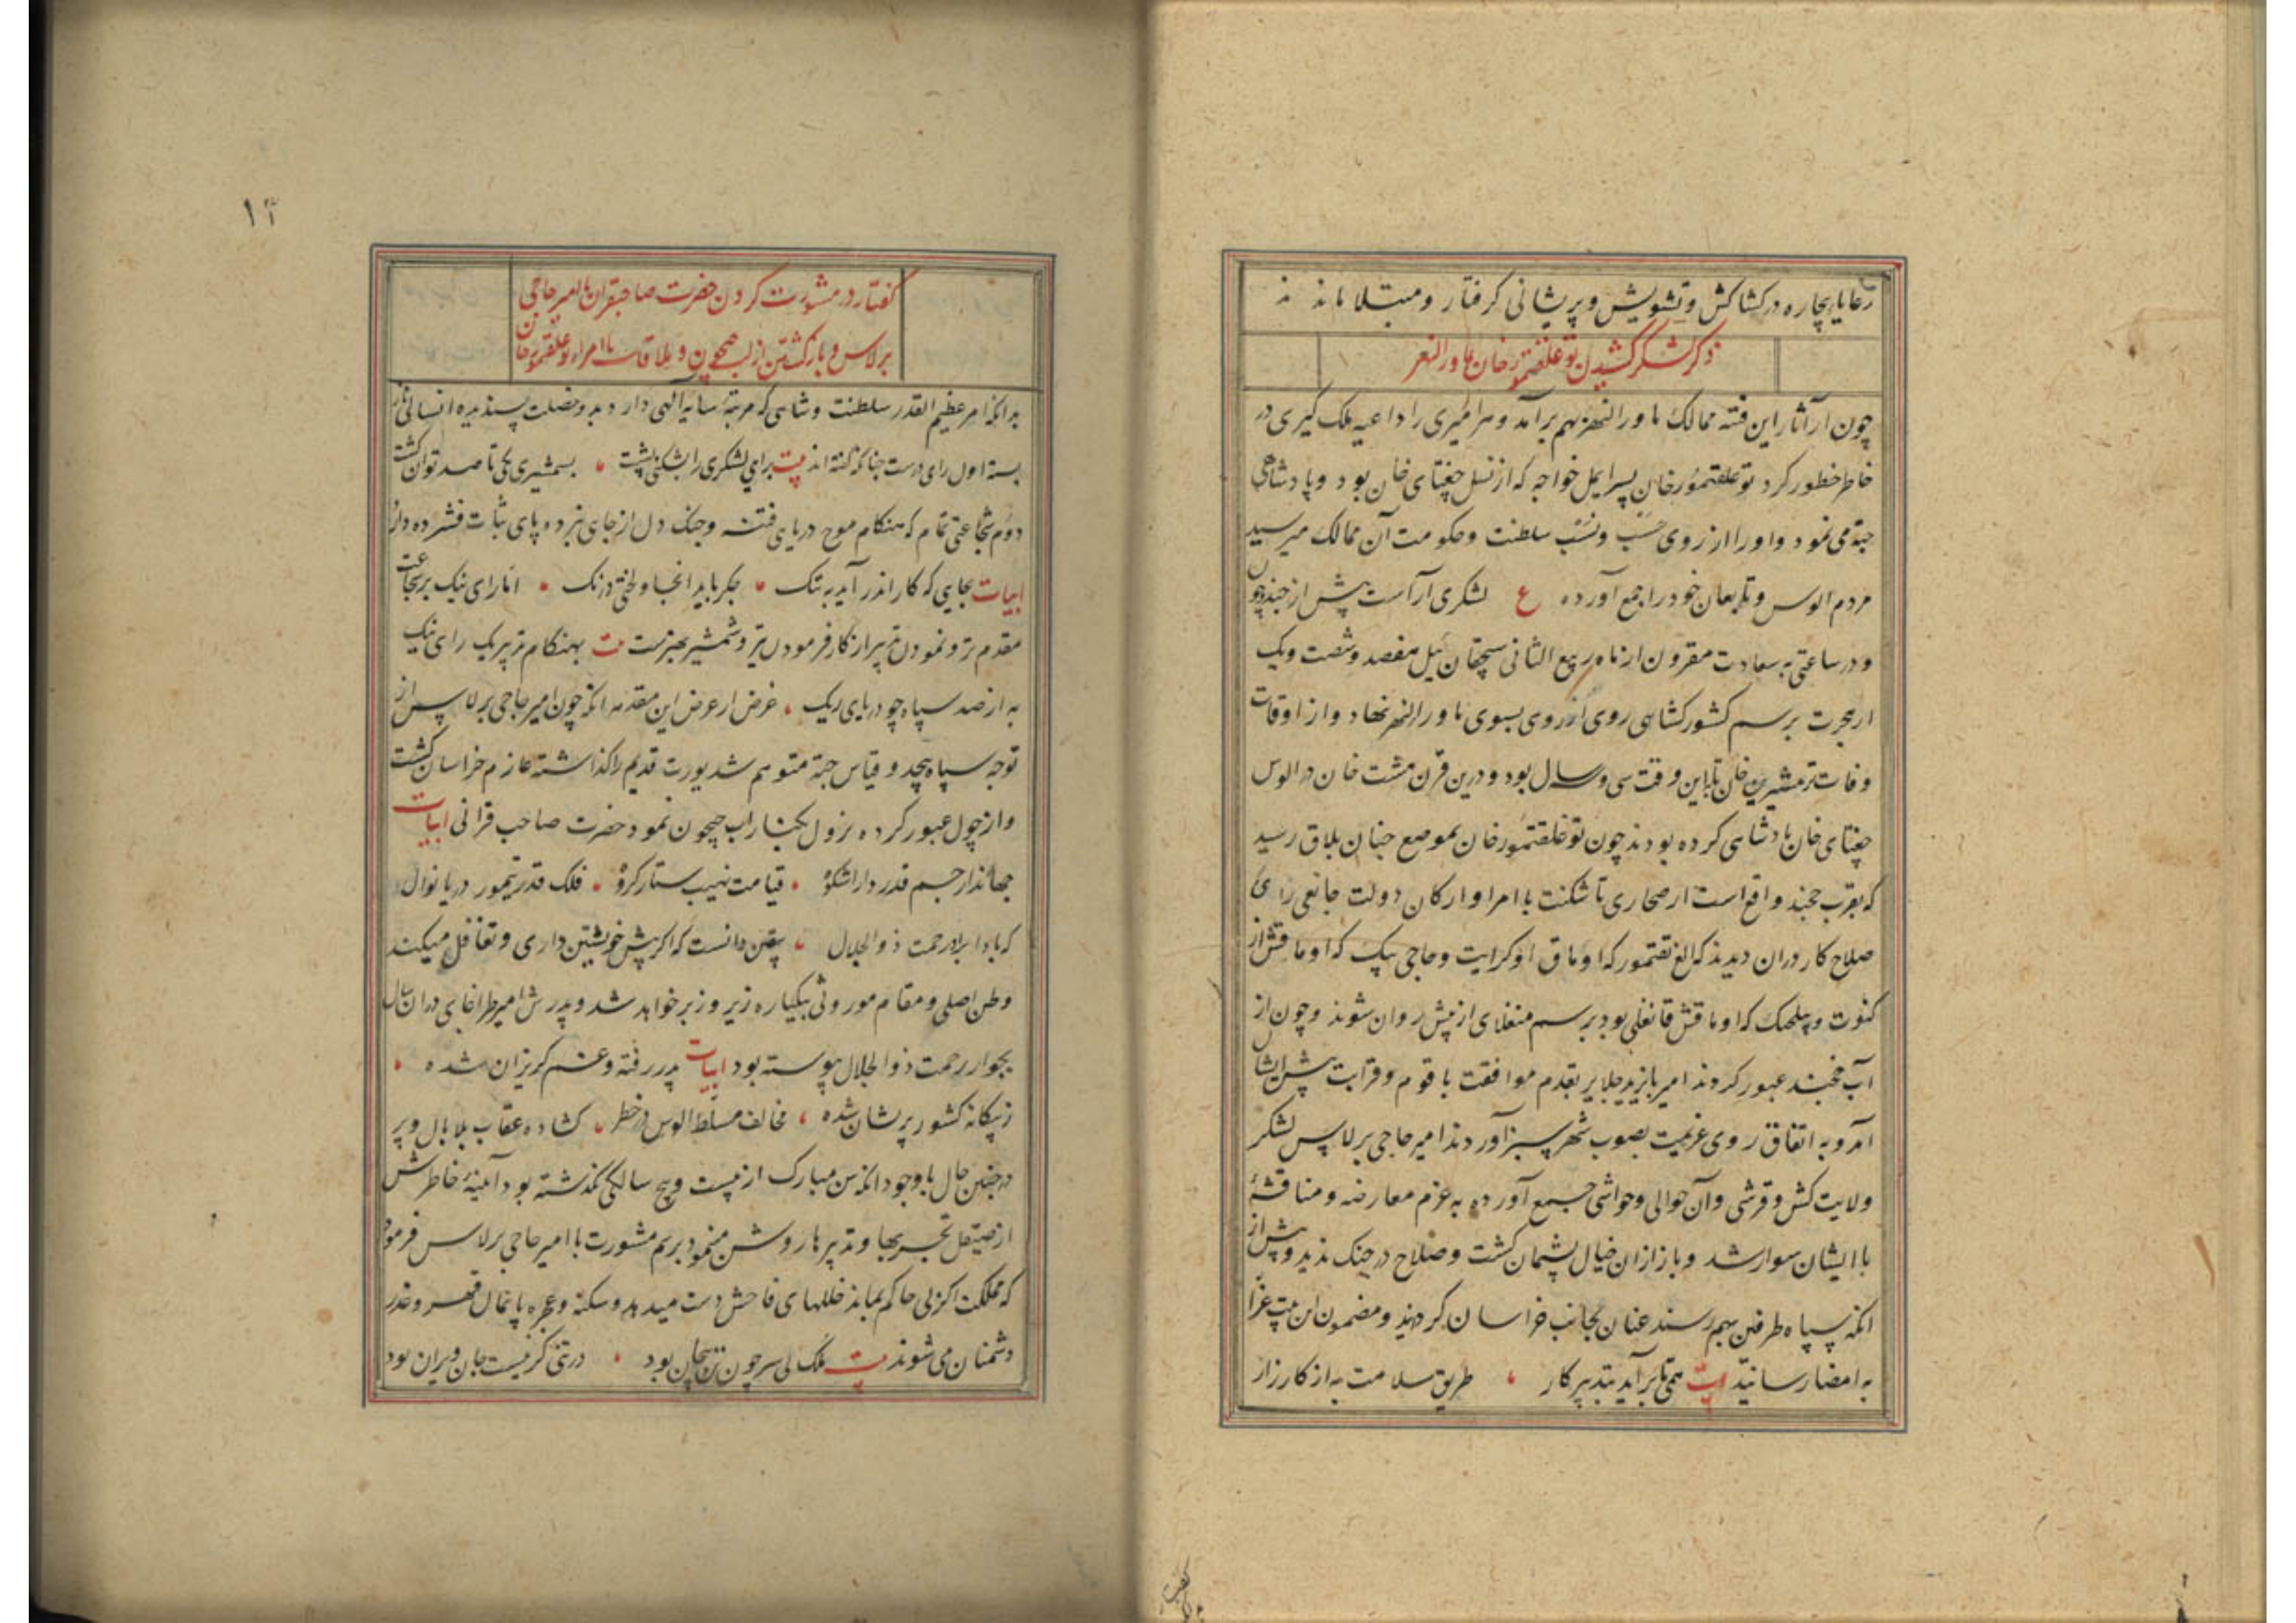 رعایا بیچاره در کشاکش و تشویش و پریشانی گرفتار و مبتلا ماندند
ذکر لشکر کشیدن توغلقتمور خان بماورالنهر
چون از آثار این فتنه ممالک ماورالنهر بهم برآمد و هر امیری را داعیه ملک گیری در
خاطر خطور کرد توغلقتمور خان پسر ایمل خواجه که از نسل جغتای خان بود و پادشاهی
جته می نمود و او را از روی حسب و نسب سلطنت و حکومت آن ممالک میرسید
مردم الوس و تابعان خود را جمع آورده ع لشکری آراست بیش از چند و چون
و در ساعتی به سعادت مقرون از ماه ربیع الثانی سچقان ئیل هفصد و شصت و یک
از هجرت برسم کشور کشاهی روی آوروی بسوی ماورالنهر نهاد و از اوقات
وفات ترمشیرین خان تا باین وقت سی و سه سال بود و درین قرن هشت خان در الوس
جغتای خان پادشاهی کرده بودند چون توغلقتمور خان بموضع چنان بلاق رسید
که بقرب خجند واقع است از صحاری تاشکنت با امرا و ارکان دولت جانقی رای
صلاح کار دران دیدند که الغ تقتمور که اوماق او کرایت و حاجی بیک که اوماقش از
کنوت و بیکجک که اوماقش قانغلی بود برسم منغلای از پیش روان شوند و چون از
آب خجند عبور کردند امیر بایزید جلایر بقدم موافقت با قوم و قرابت پیش ایشان
آمد و به اتفاق روی عزیمت بصوب شهر سبز آوردند امیر حاجی برلاس لشکر
ولایت کش و قرشی و آن حوالی و حواشی جمع آورده به عزم معارضه و مناقشهٔ
با ایشان سوار شد و باز ازان خیال پشیمان گشت و صلاح در جنک ندید و پیش از
انکه سپاه طرفین بهم رسند عنان بجانب خراسان کردانید و مضمون این بیت غرّا
به امضا رسانید بیت همی تا برآید بتدبیر کار طریق سلامت به از کارزار
۱۴
گفتار در مشورت کردن حضرت صاحبقران با امیر حاجی
برلاس و بازگشتن از لب جیحون و ملاقات با امراء توغلقتمور خان
بدانکه امر عظیم القدر سلطنت و شاهی که مرتبهٔ سایه الهی دارد بدو خصلت پسندیده انسانی باز
بسته اول رای درست چناکه گفته اند بیت برایی لشکری را بشکنی پشت بشمشیری یکی تا صد توان کشت
دوم شجاعتی تمام که هنکام موج دریای فتنه و جنک دل از جای نبرد و پای ثبات فشرده دارد
ابیات بجایی که کار اندر آید به تنک جکر باید انجا و لختی درنک اما رای نیک بر شجاعت
مقدم تر و نمودن تدبیر از کار فرمودن تیر و شمشیر بهترست بیت بهنکام تدبیر یک رای نیک
به از صد سپاه چو دریای ریک غرض از عرض این مقدمه انکه چون امیر حاجی برلاس از
توجه سپاه بیحد و قیاس جته متوهم شد یورت قدیم را گذاشته عازم خراسان گشت
و از چول عبور کرده نزول بکنار آب جیحون نمود حضرت صاحب قرانی ابیات
جهاندار جم قدر دارا شکوه قیامت نهیب ستاره کروه فلک قدر تیمور دریا نوال
که بادا برو رحمت ذوالجلال یقین دانست که اگر پیش خویشتن داری و تغافل میکند
وطن اصلی و مقام موروثی بیکباره زیر و زبر خواهد شد و پدرش امیر طراغای دران سال
بجوار رحمت ذوالجلال پیوسته بود ابیات پدر رفته و عم گریزان شده
ز بیکانه کشور پریشان شده مخالف مسلط الوس در خطر کشاده عقاب بلا بال و پر
در چنین حال با وجود انکه سن مبارک از بیست و پنج سالکی نکذشته بود آیینهٔ خاطرش
از صیقل تجربها و تدبیرها روشن می نمود برسم مشورت با امیر حاجی برلاس فرمود
که مملکت اکر بی حاکم بماند خللهای فاحش دست میدهد و سکنه و عجزه پایمال قهر و غدر
دشمنان می شوند بیت ملک بی سر چون تن بیجان بود در تنی کز نیست جان ویران بود